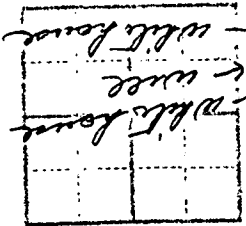 - white house
← well
- white house